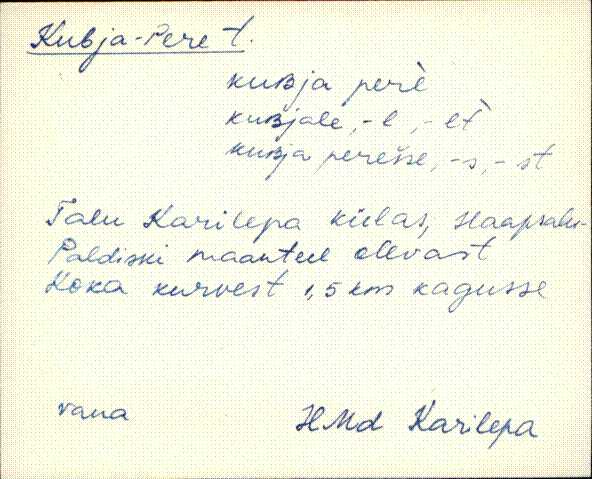 Kubja-Pere t.
kuʙja perè
kuʙjale, -l, -lt
kuʙja peresse, -s, -st
Talu Karilepa külas, Haapsalu-
Paldiski maanteel olevast
Koka kurvest 1,5 km kagusse
vana HMd Karilepa